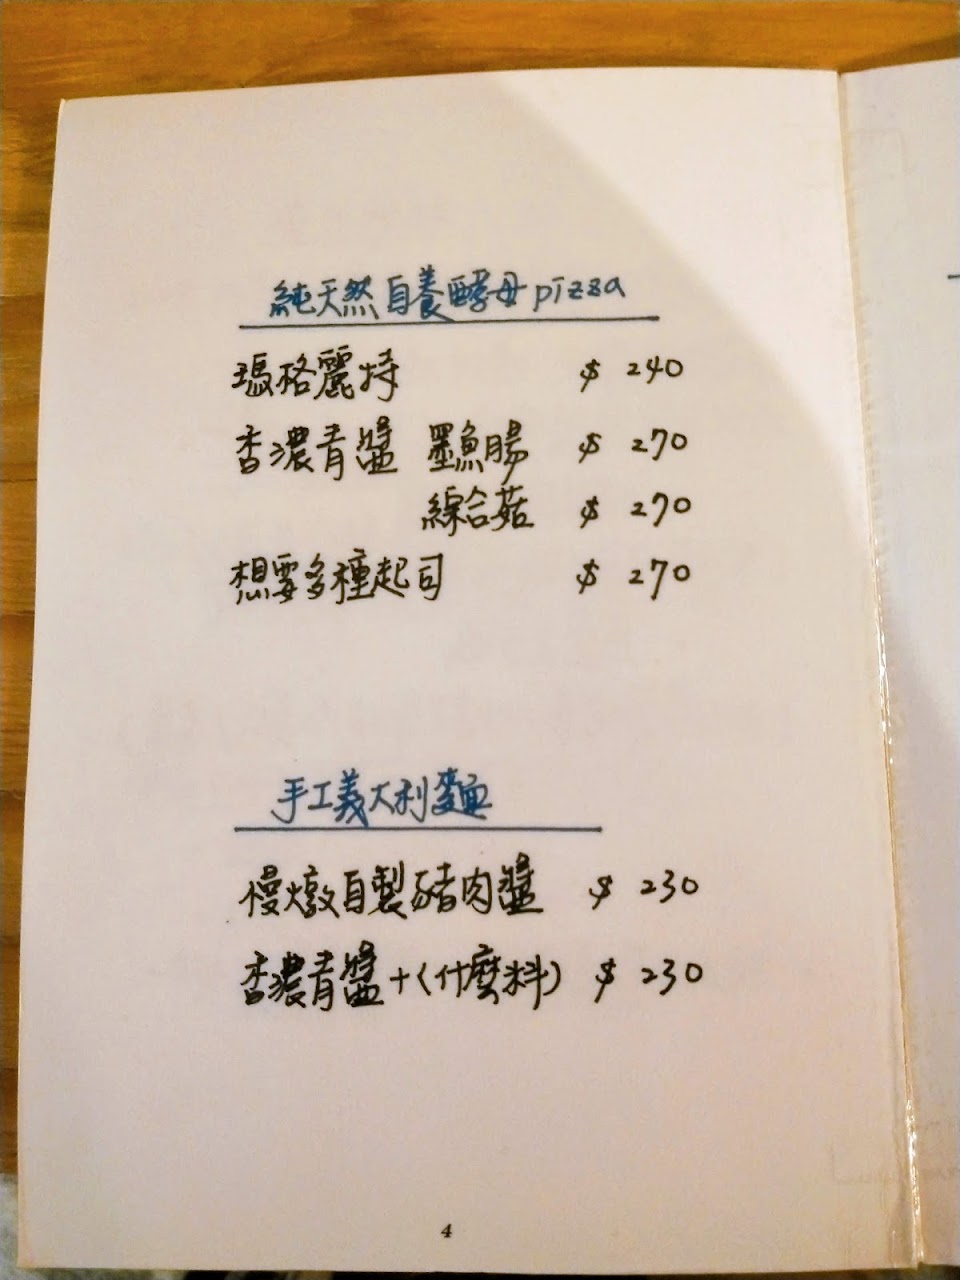 純天然自養酵母pizza
瑪格麗特 $ 240
香濃青醬 墨魚腸 $ 270
綜合菇 $ 270
想要多種起司 $ 270
手工義大利麵
慢燉自製豬肉醬 $ 230
香濃青醬+(什麼料) $ 230
4